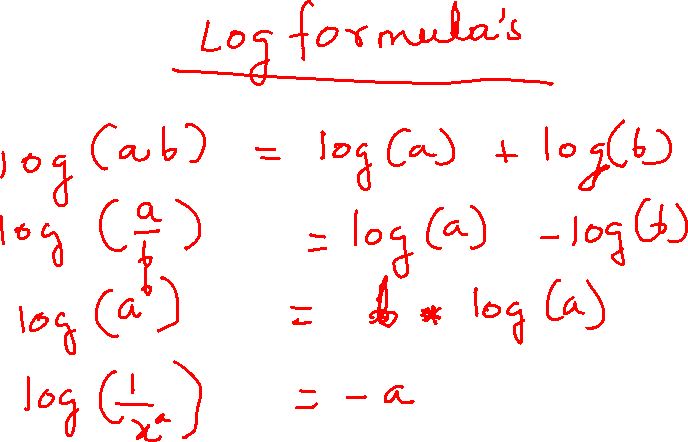 Log formula's
log (ab) = log(a) + log(b)
log (a/b) = log(a) - log(b)
log (a^b) = b * log(a)
log (1/x^a) = - a